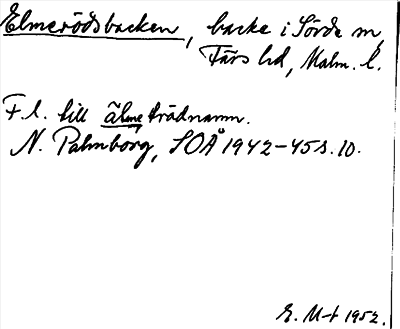 Elmerödsbacken, backe i Sövde sn,
Färs hd, Malm. l.
F. l. till älme trädnamn.
N. Palmborg, SOÅ 1942-45 s. 10.
E. M-t 1952.